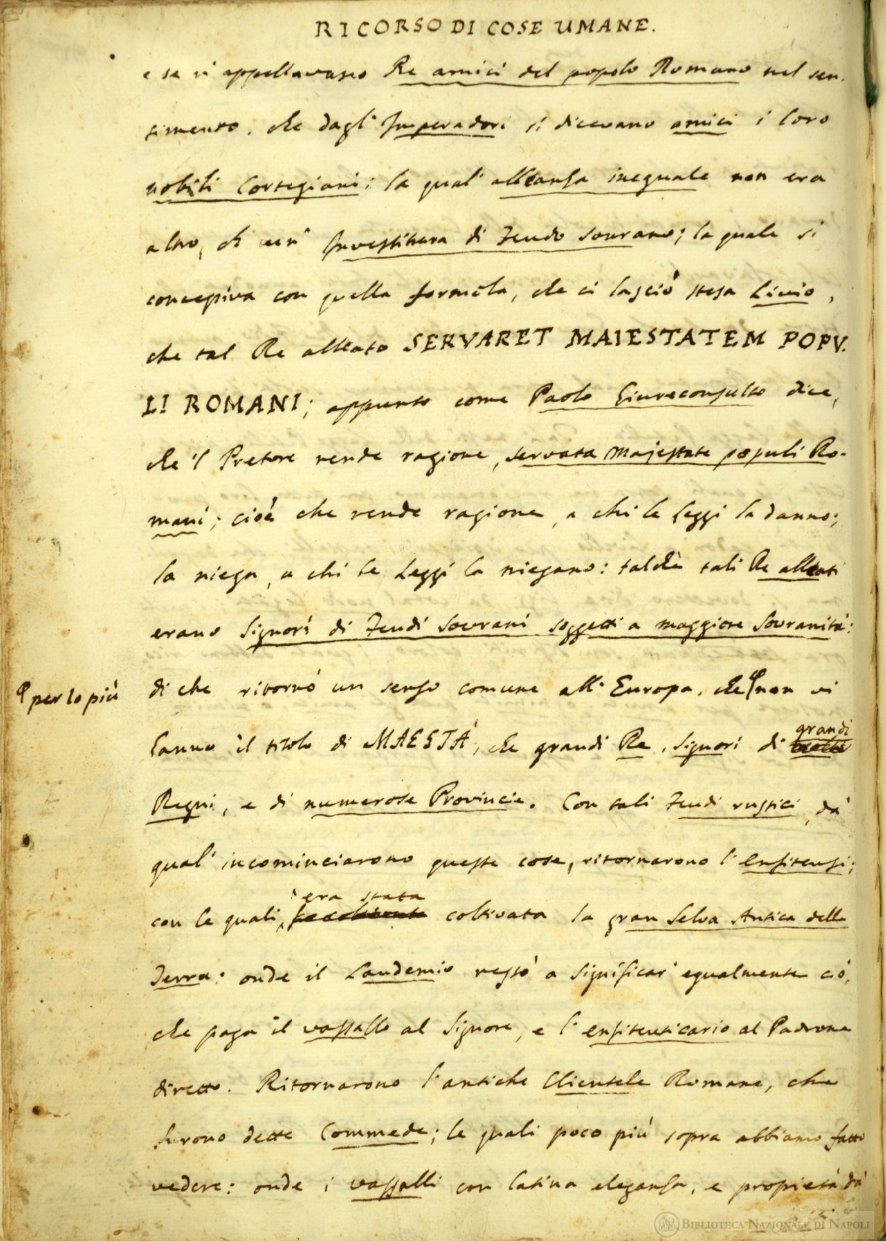 RICORSO DI COSE UMANE.
e se n'appellavano Re amici del popolo Romano nel sen-
timento, che dagl'Imperadori si dicevano amici i loro
nobili Cortegiani: la qual'alleanza ineguale non era
altro, ch'un'Investitura di Feudo Sovrano; la quale si
concepiva con quella formola, che ci lasciò stesa Livio,
che tal Re alleato SERVARET MAIESTATEM POPV-
LI ROMANI; appunto come Paolo Giureconsulto dice,
che 'l Pretore rende ragione, servata majestate populi Ro-
mani; cioè che rende ragione, a chi le Leggi la danno;
la niega, a chi le Leggi la niegano: talchè tali Re alleati
erano Signori di Feudi Sovrani soggetti a maggiore Sovranità:
di che ritornò un senso comune all'Europa, che non vi
per lo più
hanno il titolo di MAESTÀ, che grandi Re, Signori di
grandi
Regni, e di numerose Provincie. Con tali Feudi rustici, da'
quali incominciarono queste cose, ritornarono l'enfiteusi;
era stata
con le quali, coltivata la gran Selva Antica della
Terra: onde il Laudemio restò a significar' egualmente ciò,
che paga il vassallo al Signore, e l'enfiteuticario al Padrone
diretto. Ritornarono l'antiche Clientele Romane, che
furono dette Commende; le quali poco più sopra abbiamo fatto
vedere: onde i vassalli con latina eleganza, e propietà da'
BIBLIOTECA NAZIONALE DI NAPOLI